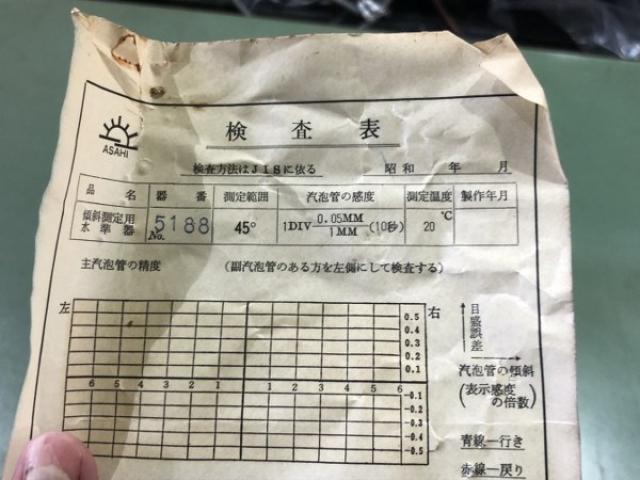 ASAHI
検査表
検査方法はJISに依る 昭和 年 月
品名 器番 測定範囲 汽泡管の感度 測定温度 製作年月
傾斜測定用水準器 No. 5188 45° 1DIV 0.05MM/1MM (10秒) 20℃
主汽泡管の精度 (副汽泡管のある方を左側にして検査する)
左 右
0.5
0.4
0.3
0.2
0.1
6 5 4 3 2 1 1 2 3 4 5 6
-0.1
-0.2
-0.3
-0.4
-0.5
目盛誤差
汽泡管の傾斜
(表示感度の倍数)
青線—行き
赤線—戻り